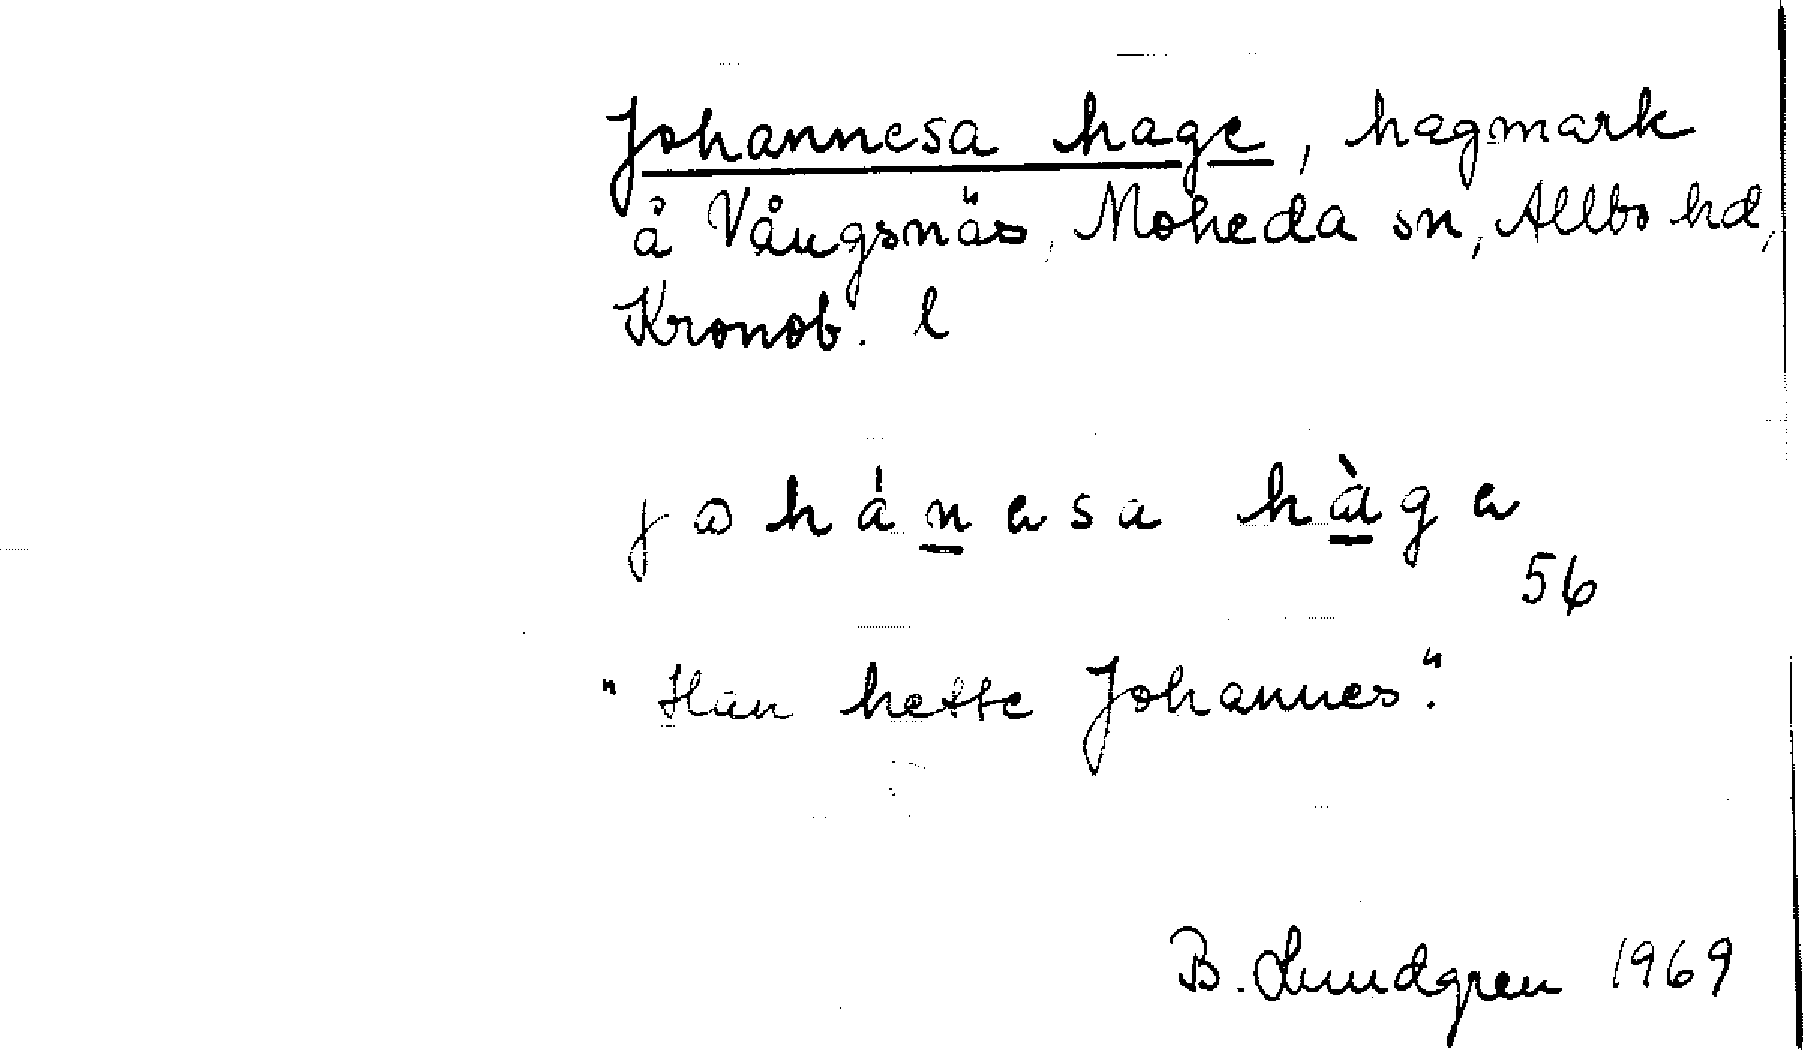 Johannesa hage, hagmark
å Vångsnäs, Moheda sn, Allbo hd,
Kronob. l
johánesa hàge
56
"Han hette Johannes".
B. Lundgren 1969